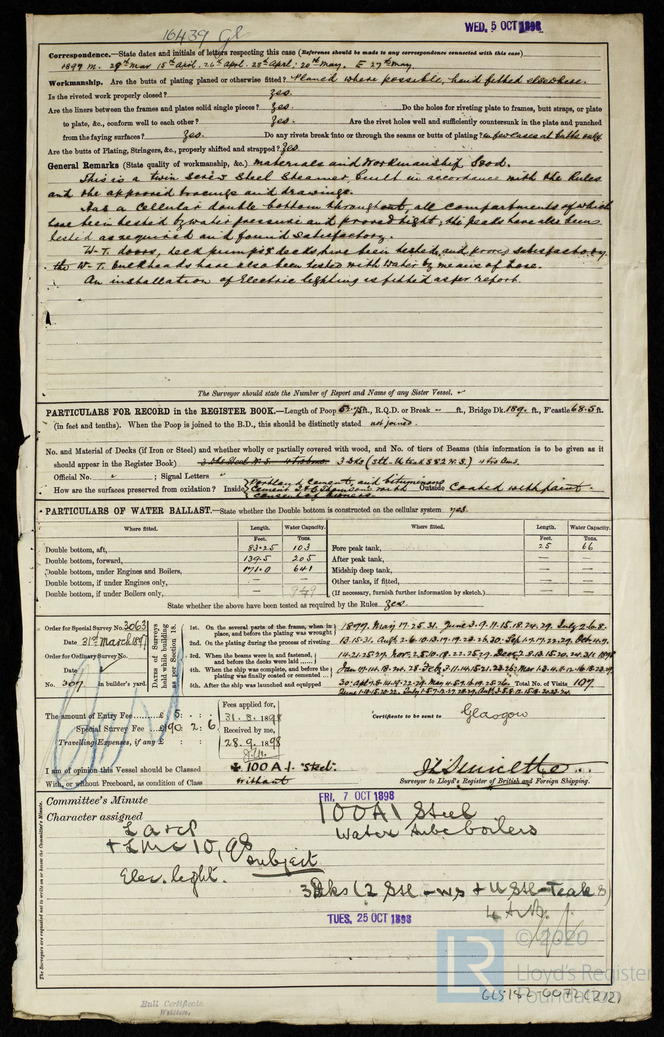 16439 Gl
WED. 5 OCT 1898
Correspondence.—State dates and initials of letters respecting this case (Reference should be made to any correspondence connected with this case)
1897 M. 29th Mar 15th April, 26th April. 28th April; 20th May. E 27th May.
Workmanship. Are the butts of plating planed or otherwise fitted? Planed where possible, hand fitted elsewhere.
Is the riveted work properly closed? Yes.
Are the liners between the frames and plates solid single pieces? Yes. Do the holes for riveting plate to frames, butt straps, or plate
to plate, &c., conform well to each other? Yes. Are the rivet holes well and sufficiently countersunk in the plate and punched
from the faying surfaces? Yes. Do any rivets break into or through the seams or butts of plating? in few cases at butts only
Are the butts of Plating, Stringers, &c., properly shifted and strapped? Yes
General Remarks (State quality of workmanship, &c.) Materials and Workmanship Good.
This is a twin screw Steel Steamer, built in accordance with the Rules
and the approved tracings and drawings.
Has a Cellular double bottom throughout, all compartments of which
have been tested by water pressure and proved tight; the peaks have also been
tested as required and found satisfactory.
W.T. doors, deck pumps & decks have been tested, and proved satisfactory.
the W.T. bulkheads have also been tested with water by means of hose.
An installation of Electric lighting is fitted as per report.
The Surveyor should state the Number of Report and Name of any Sister Vessel.
PARTICULARS FOR RECORD in the REGISTER BOOK.—Length of Poop 52.75 ft., R.Q.D. or Break - ft., Bridge Dk. 189. ft., F'castle 68.5 ft.
(in feet and tenths). When the Poop is joined to the B.D., this should be distinctly stated not joined.
No. and Material of Decks (if Iron or Steel) and whether wholly or partially covered with wood, and No. of tiers of Beams (this information is to be given as it
should appear in the Register Book) 3 Dks (Stl. U teak S & 2 W.S.) 4 trs Bms.
Official No. " ; Signal Letters "
How are the surfaces preserved from oxidation? Inside Portland Cement, and bituminous
Cement Outside Coated with paint.
consent of owners.
PARTICULARS OF WATER BALLAST.—State whether the Double bottom is constructed on the cellular system yes.
Where fitted. Length. Water Capacity. Where fitted. Length. Water Capacity.
Feet. Tons. Feet. Tons.
Double bottom, aft, 83.25 103 Fore peak tank, 25 66
Double bottom, forward, 139.5 205 After peak tank, — —
Double bottom, under Engines and Boilers, 171.0 641 Midship deep tank, — —
Double bottom, if under Engines only, — — Other tanks, if fitted, — —
Double bottom, if under Boilers only, — 949 (If necessary, furnish further information by sketch.)
State whether the above have been tested as required by the Rules Yes.
Order for Special Survey No. 3063
Date 31st March 1897
Order for Ordinary Survey No.
Date
No. 307 in builder's yard.
Dates of Surveys held while building as per Section 18.
1st. On the several parts of the frame, when in place, and before the plating was wrought
2nd. On the plating during the process of riveting
3rd. When the beams were in and fastened, and before the decks were laid
4th. When the ship was complete, and before the plating was finally coated or cemented
5th. After the ship was launched and equipped
1897. May 17.25.31. June 3.9.11.15.18.24.29. July 2.6.8.
Total No. of Visits 107
The amount of Entry Fee £ 5 : :
Special Survey Fee £ 190 : 2 : 6
Travelling Expenses, if any £ : :
Fees applied for,
31.8.1898
Received by me,
28.9.1898
Certificate to be sent to Glasgow
I am of opinion this Vessel should be Classed ✠ 100 A1. "Steel"
With, or without Freeboard, as condition of Class without
Surveyor to Lloyd's Register of British and Foreign Shipping.
Committee's Minute FRI. 7 OCT 1898
Character assigned 100A1 Steel
Water tube boilers
L A & CP
+ LMC 10,98
subject
Elec. light.
3 Dks (2 Stl - ws + U Stl - Teak S)
TUES. 25 OCT 1898
The Surveyors are requested not to write on or below the Committee's Minute.
© 2020
LR
Lloyd's Register
Foundation
GLS 182-0072 (2/2)
Hull Certificate
Written.